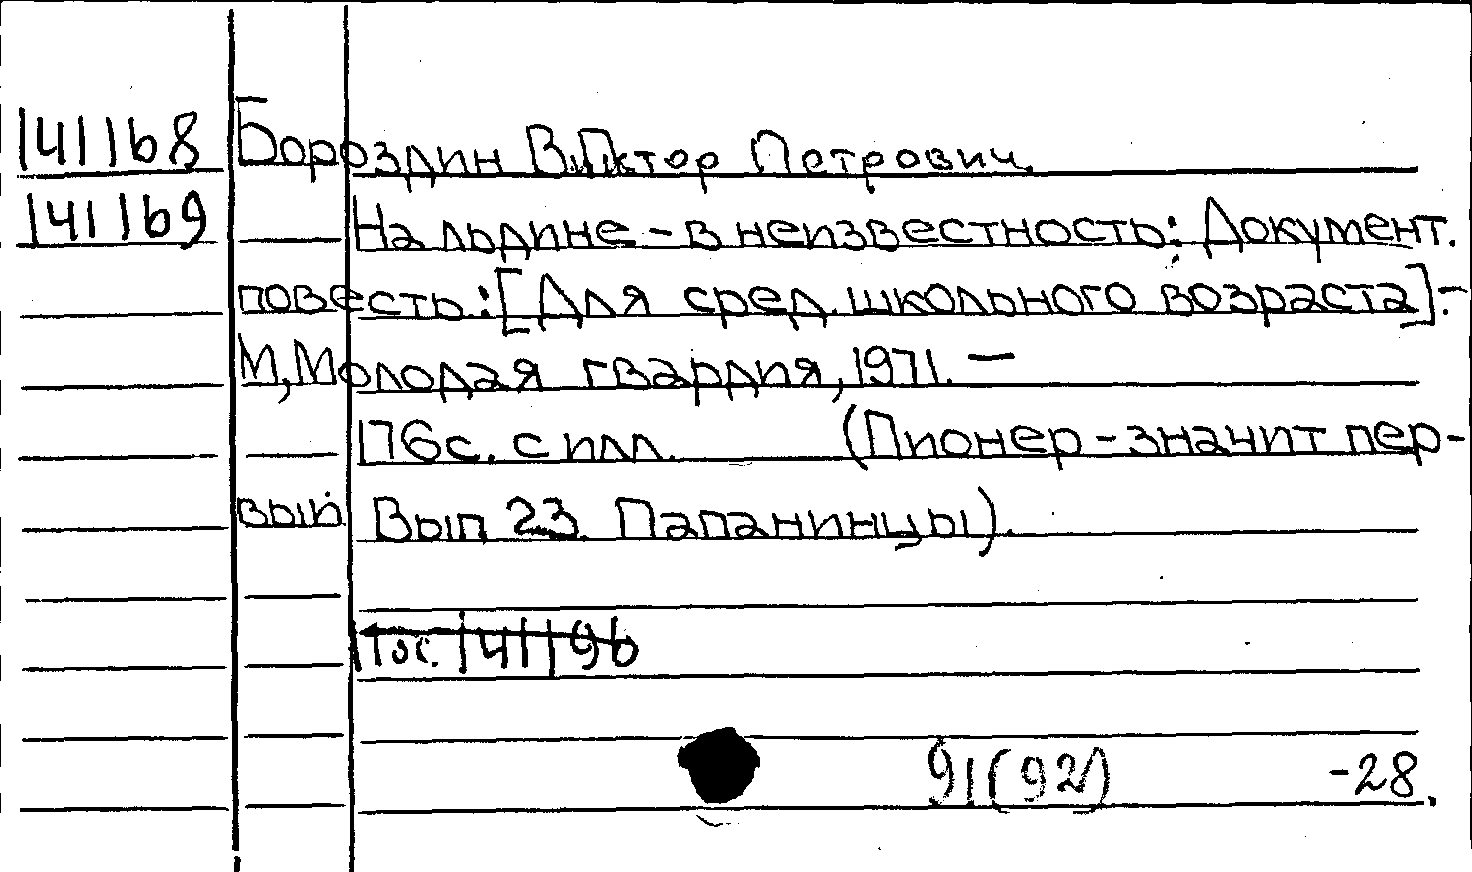 141168 Бороздин Виктор Петрович.
141169 На льдине - в неизвестность: Документ.
повесть: [Для сред. школьного возраста] -
М, Молодая гвардия, 1971. —
176с. с илл. (Пионер - значит пер-
вый Вып 23. Папанинцы).
141196
91(92) -28.